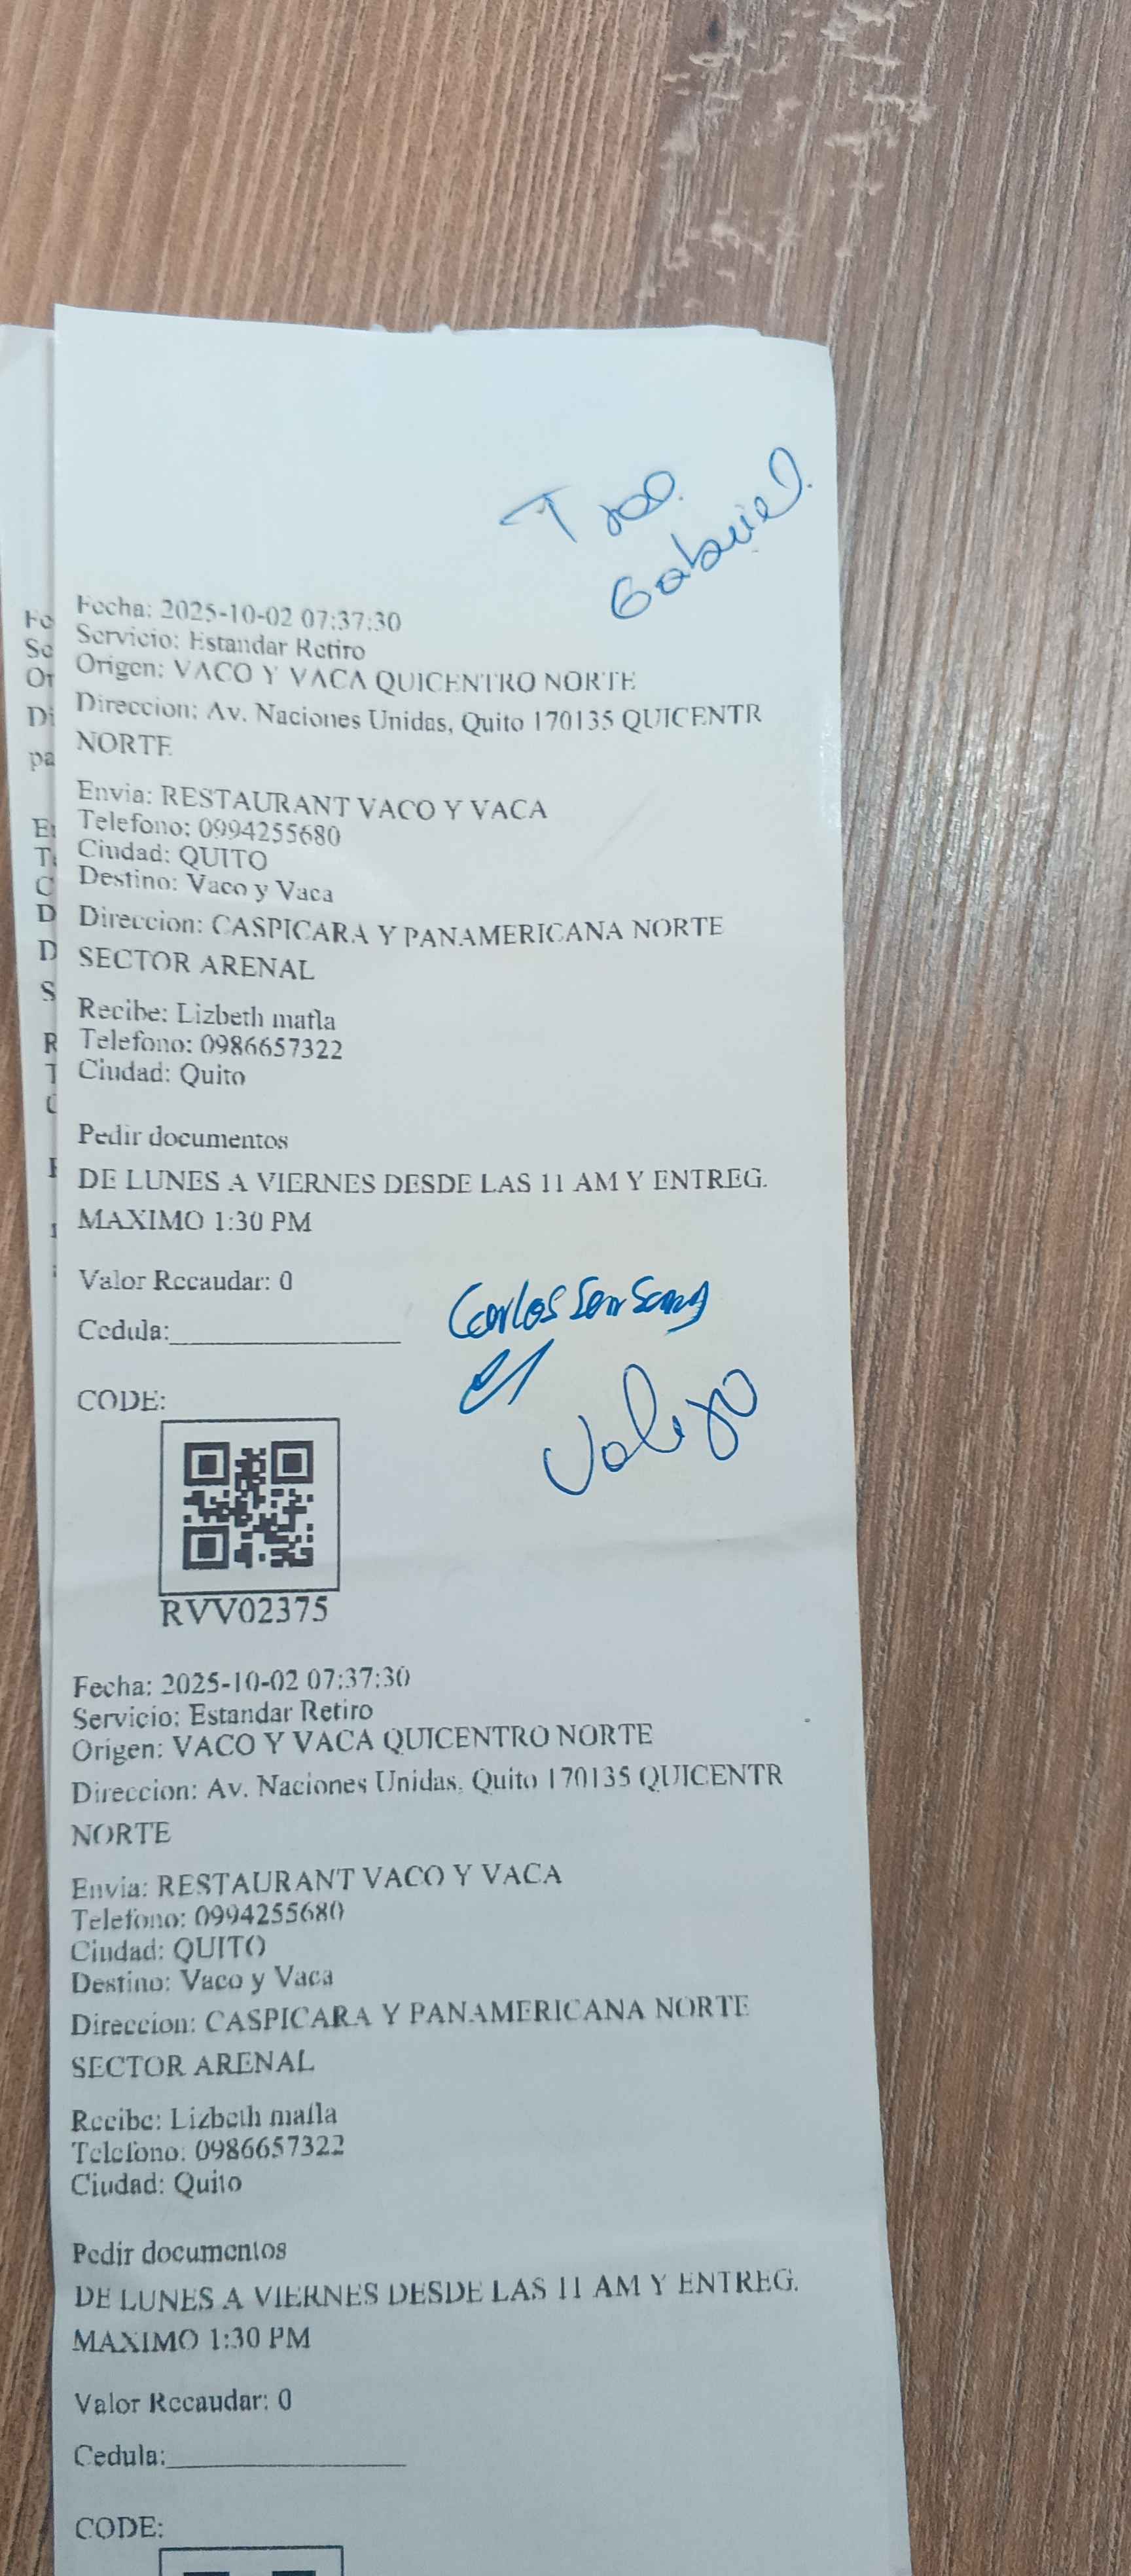 Gabriel
Fecha: 2025-10-02 07:37:30
Servicio: Estandar Retiro
Origen: VACO Y VACA QUICENTRO NORTE
Direccion: Av. Naciones Unidas, Quito 170135 QUICENTR
NORTE
Envia: RESTAURANT VACO Y VACA
Telefono: 0994255680
Ciudad: QUITO
Destino: Vaco y Vaca
Direccion: CASPICARA Y PANAMERICANA NORTE
SECTOR ARENAL
Recibe: Lizbeth matla
Telefono: 0986657322
Ciudad: Quito
Pedir documentos
DE LUNES A VIERNES DESDE LAS 11 AM Y ENTREG.
MAXIMO 1:30 PM
Valor Recaudar: 0
Carlos
Cedula:
Valija
CODE:
RVV02375
Fecha: 2025-10-02 07:37:30
Servicio: Estandar Retiro
Origen: VACO Y VACA QUICENTRO NORTE
Direccion: Av. Naciones Unidas, Quito 170135 QUICENTR
NORTE
Envia: RESTAURANT VACO Y VACA
Telefono: 0994255680
Ciudad: QUITO
Destino: Vaco y Vaca
Direccion: CASPICARA Y PANAMERICANA NORTE
SECTOR ARENAL
Recibe: Lizbeth matla
Telefono: 0986657322
Ciudad: Quito
Pedir documentos
DE LUNES A VIERNES DESDE LAS 11 AM Y ENTREG.
MAXIMO 1:30 PM
Valor Recaudar: 0
Cedula:
CODE: